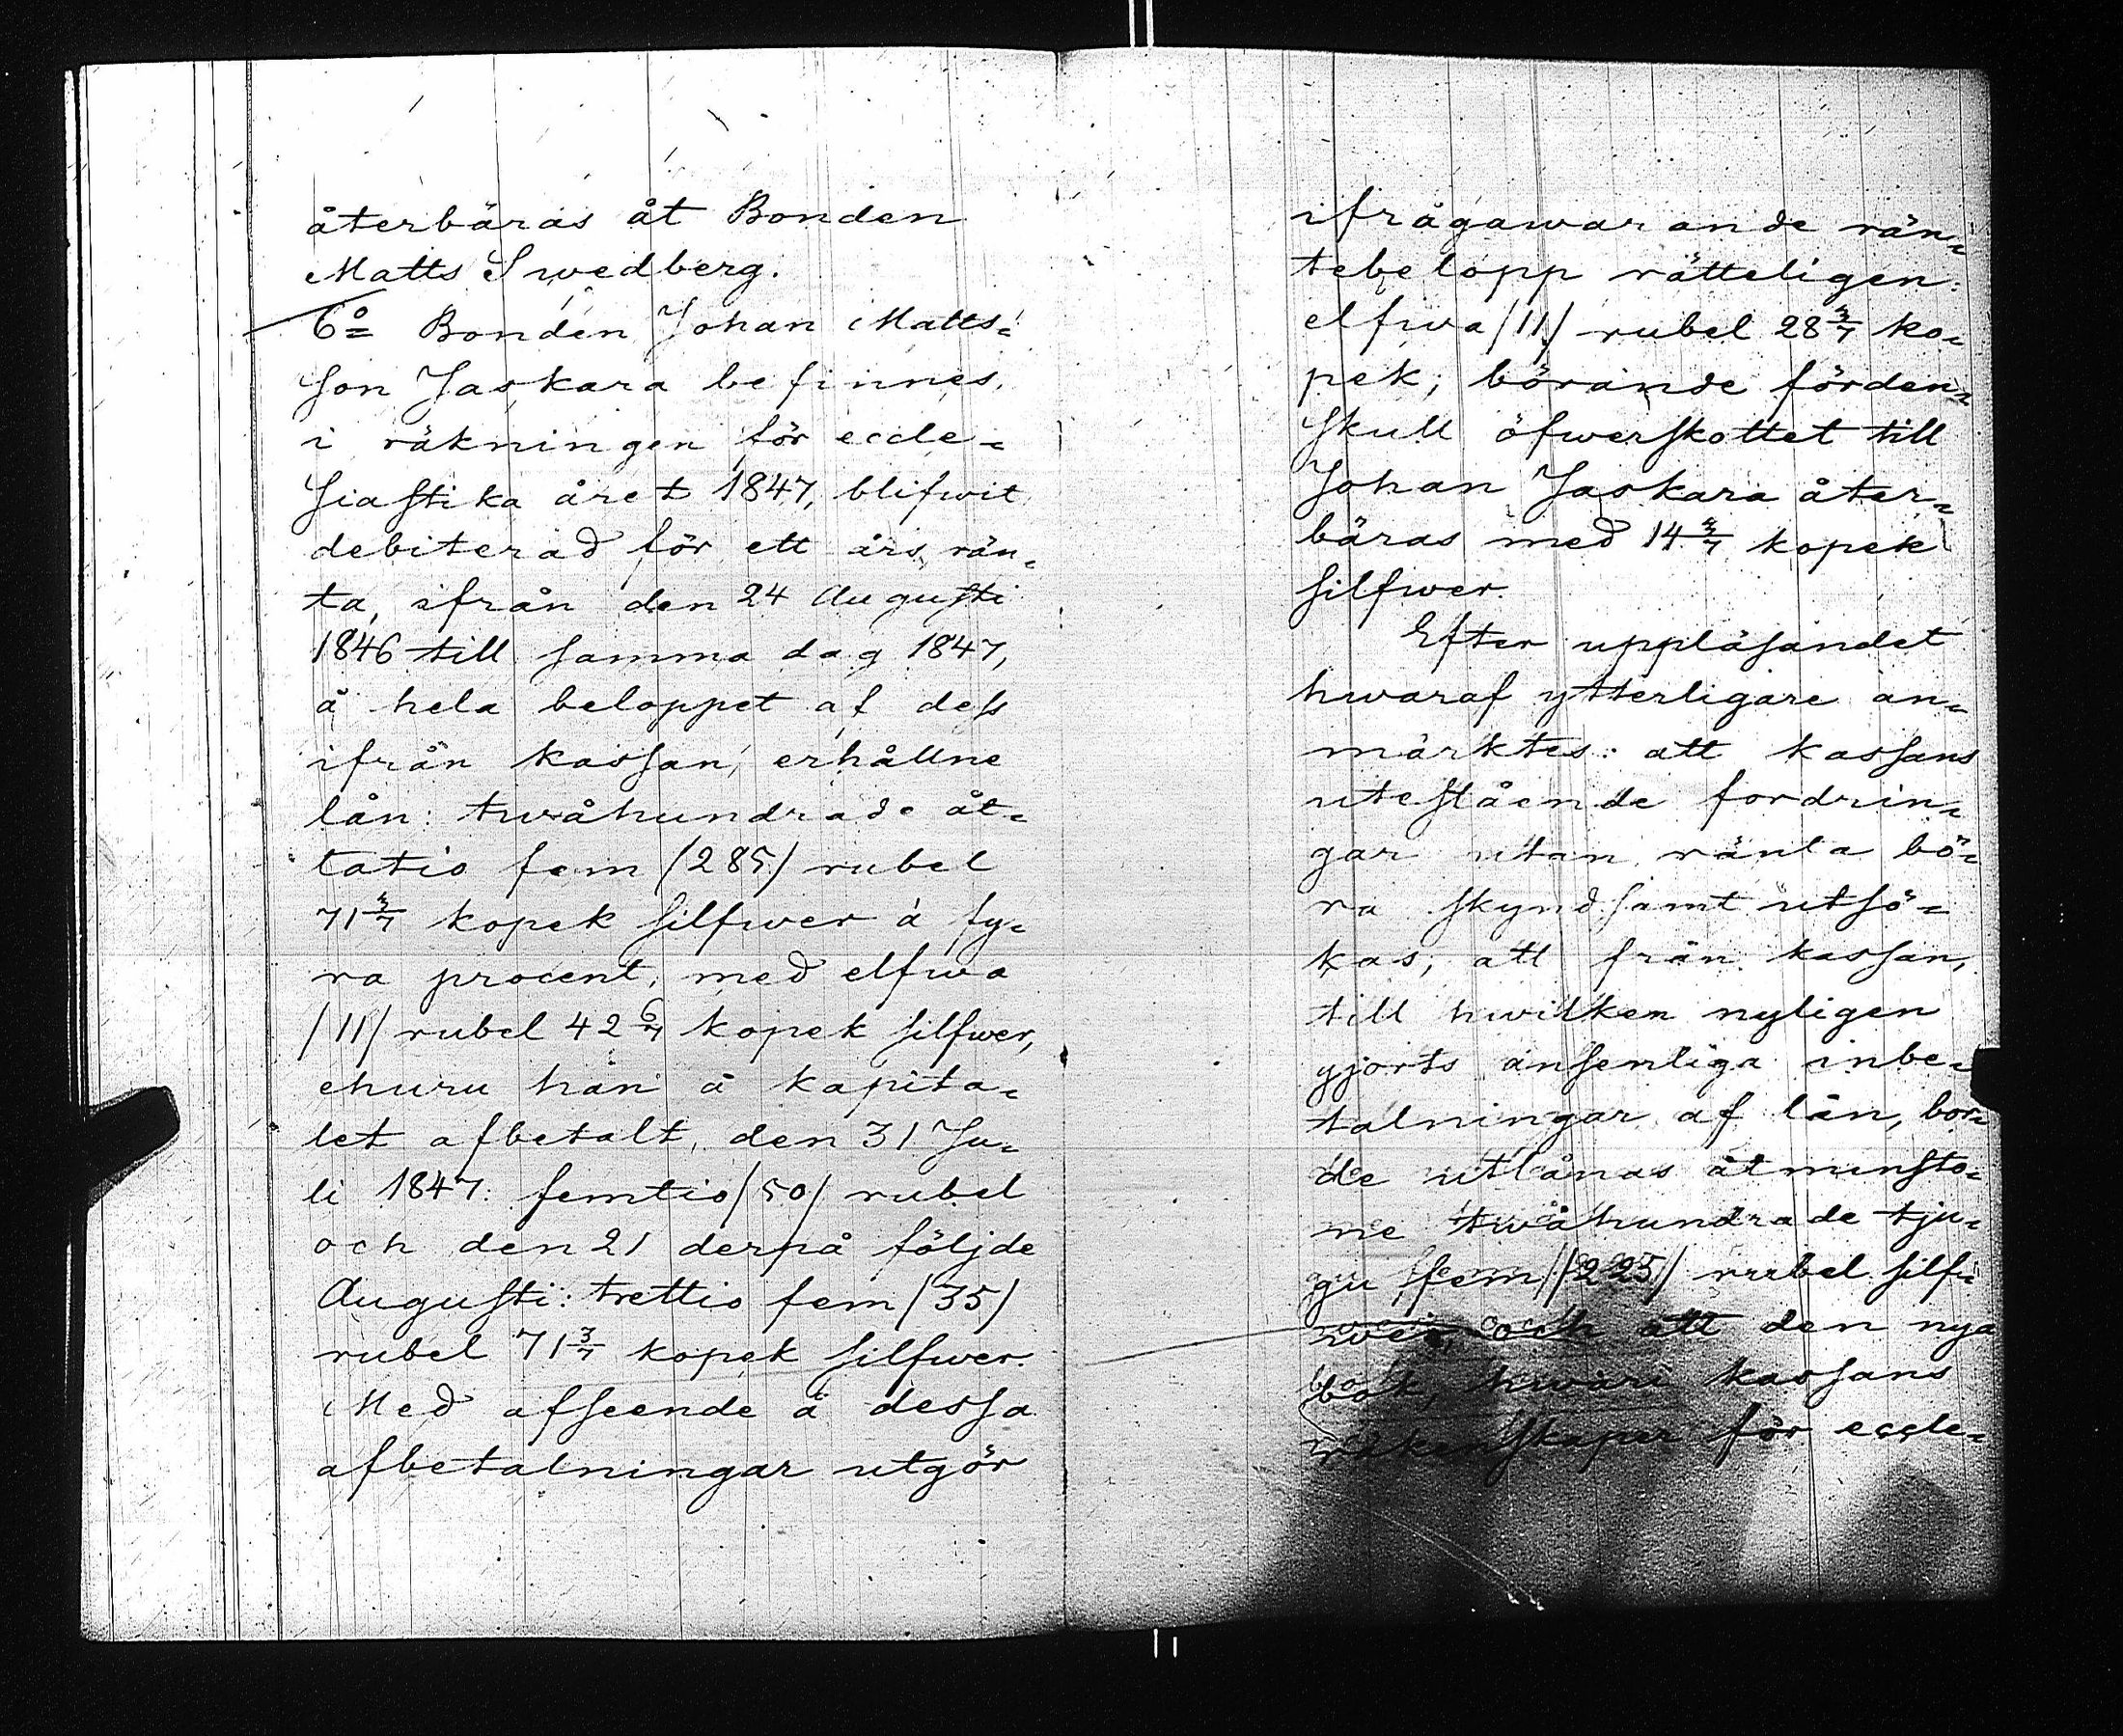 återbäras åt Bonden
Matts Swedberg.
6º Bonden Johan Matts-
son Jaskara befinnes,
i räkningen för eccle-
siastika året 1847, blifwit
debiterad för ett års rän-
ta, ifrån den 24 Augusti
1846 till samma dag 1847,
å hela beloppet af dess
ifrån kassan, erhållne
lån: twåhundrade åt-
tatio fem /285/ rubel
71 3/7 kopek silfwer à fy-
ra procent, med elfwa
/11/ rubel 42 6/7 kopek silfwer,
ehuru han å kapita-
let afbetalt, den 31 Ju-
li 1847: femtio /50/ rubel
och den 21 derpå följde
Augusti: trettio fem /35/
rubel 71 3/7 kopek silfwer.
Med afseende å dessa
afbetalningar utgör
ifrågawarande rän-
tebelopp rätteligen:
elfwa /11/ rubel 28 3/7 ko-
pek; börande förden-
skull öfwerskottet till
Johan Jaskara åter-
bäras med 14 3/7 kopek
silfwer.
Efter uppläsandet
hwaraf ytterligare an-
märktes: att kassans
utestående fordrin-
gar utan ränta bö-
ra skyndsamt utsö-
kas; att från kassan,
till hwilken nyligen
gjorts ansenliga inbe-
talningar af lån, bor-
de utlånas åtminsto-
ne twåhundrade tju-
gu fem /225/ rubel silf-
wer, och att den nya
bok, hwari kassans
räkenskaper för eccle-